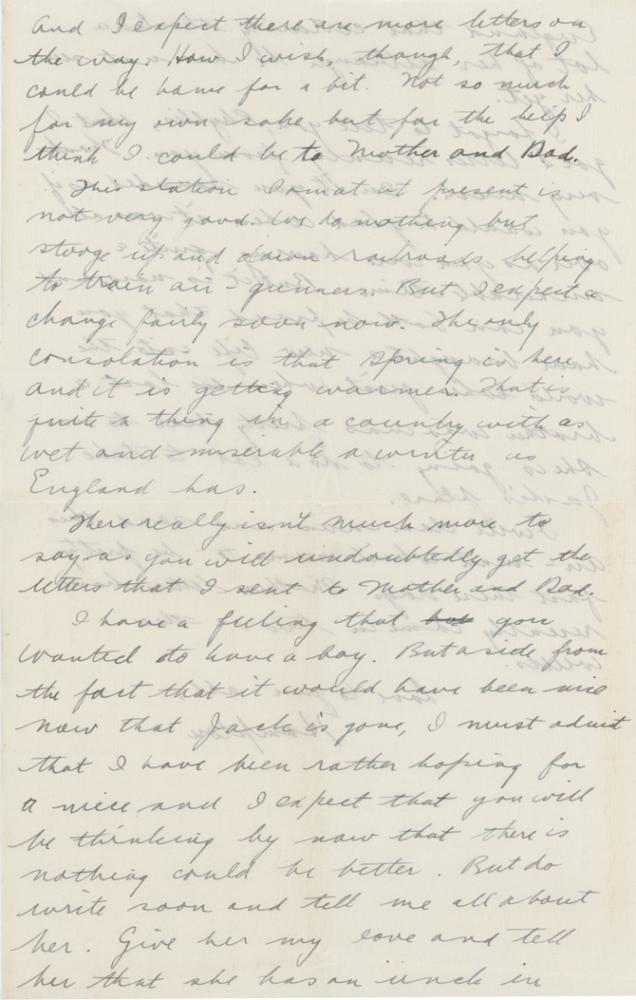 And I expect there are more letters on
the way. How I wish, though, that I
could be home for a bit. Not so much
for my own sake but for the help I
think I could be to Mother and Dad.
This station I am at at present is
not very good. We do nothing but
stooge up and down railroads helping
to train air-gunners. But I expect a
change fairly soon now. The only
consolation is that spring is here
and it is getting warmer. That is
quite a thing in a country with as
wet and miserable a winter as
England has.
There really isn't much more to
say as you will undoubtedly get the
letters that I sent to Mother and Dad.
I have a feeling that you
wanted to have a boy. But aside from
the fact that it would have been nice
now that Jack is gone, I must admit
that I have been rather hoping for
a niece and I expect that you will
be thinking by now that there is
nothing could be better. But do
write soon and tell me all about
her. Give her my love and tell
her that she has an uncle in